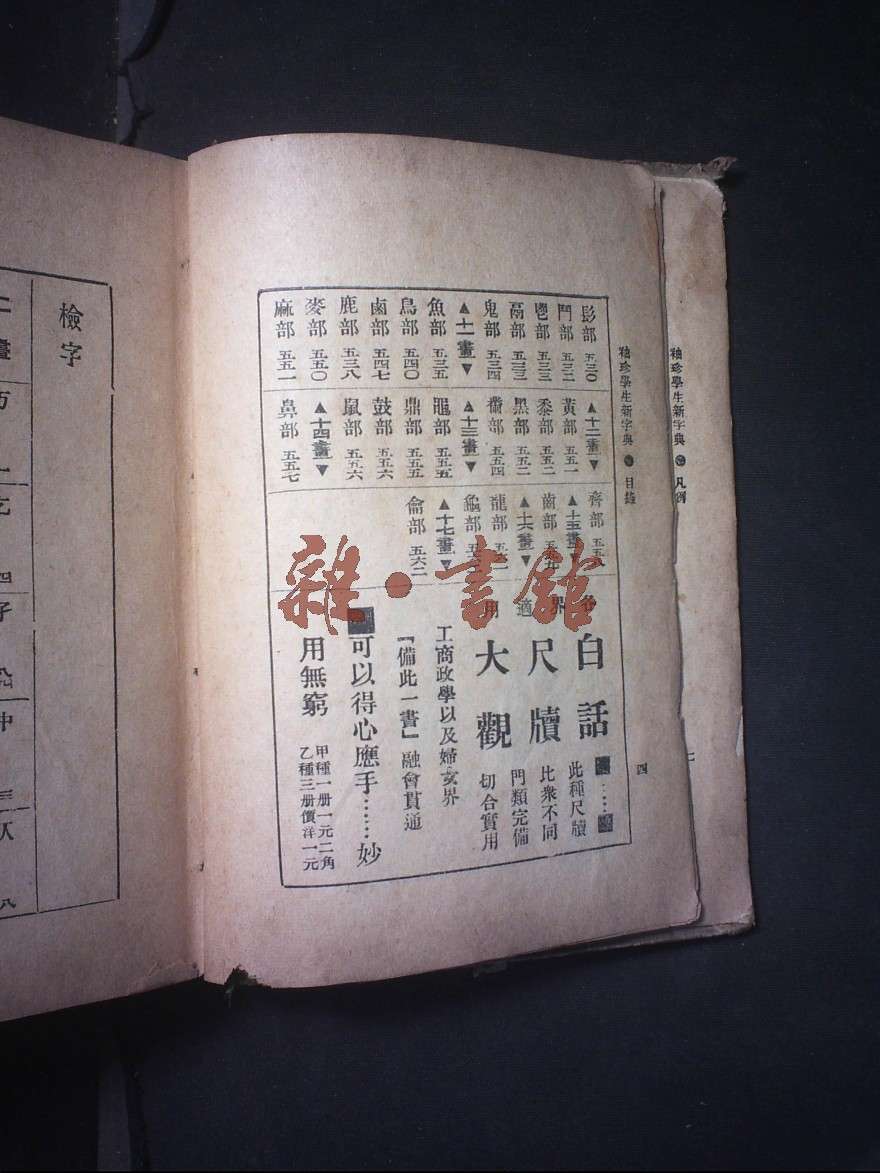 袖珍學生新字典 凡例
袖珍學生新字典 目錄 四
髟部 五三〇
鬥部 五三二
鬯部 五三三
鬲部 五三三
鬼部 五三四
▲十一畫▼
魚部 五三五
鳥部 五四〇
鹵部 五四七
鹿部 五三八
麥部 五五〇
麻部 五五一
▲十二畫▼
黃部 五五一
黍部 五五二
黑部 五五二
黹部 五五四
▲十三畫▼
黽部 五五五
鼎部 五五五
鼓部 五五六
鼠部 五五六
▲十四畫▼
鼻部 五五七
齊部 五五
▲十五畫
齒部 五五九
▲十六畫▼
龍部 五六
龜部 五六
▲十七畫▼
龠部 五六二
各界適用
白話
尺牘
大觀
此種尺牘
比衆不同
門類完備
切合實用
工商政學以及婦女界
「備此一書」融會貫通
可以得心應手……妙
用無窮
甲種一册一元二角
乙種三册價洋一元
檢字
雜·書館